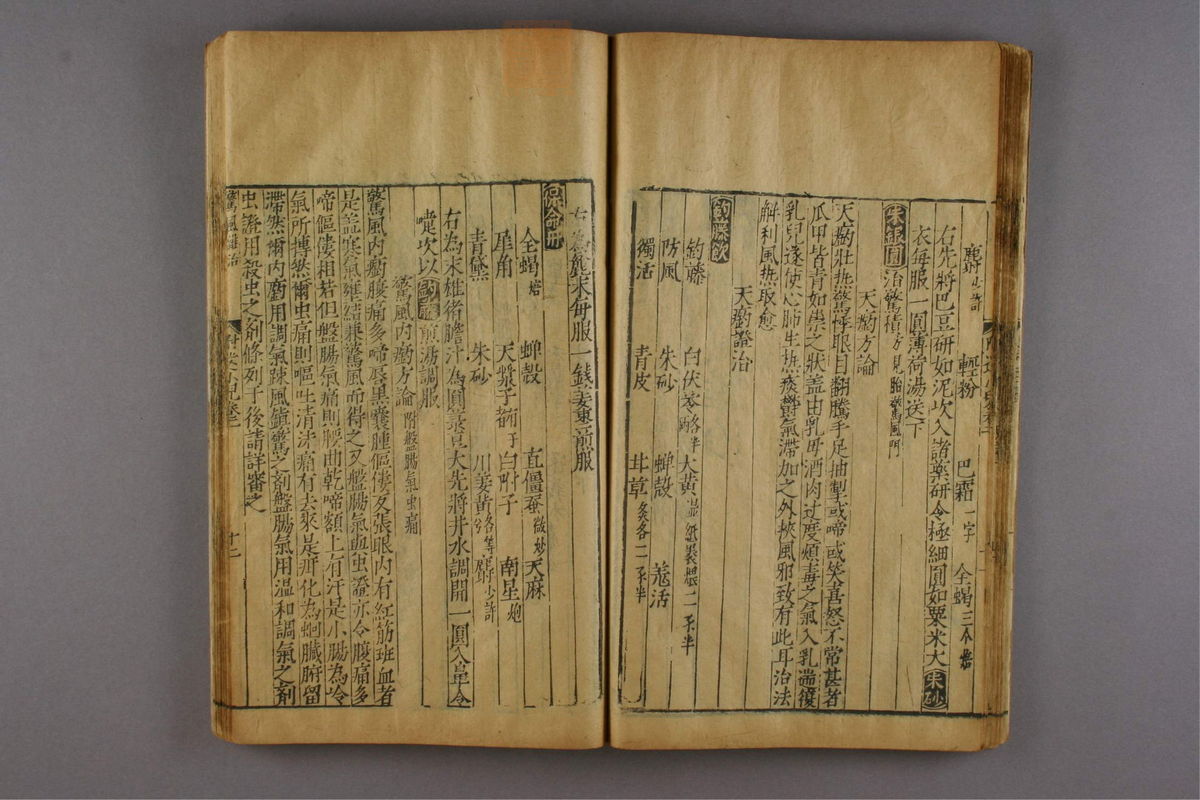 麝少許 輕粉 巴霜一字 全蝎三个焙
右先將巴豆研如泥次入諸藥研令極細圓如粟米大朱砂
衣每服一圓薄荷湯送下
朱銀圓治驚積方見胎驚風門
天瘹方論
天瘹壯热驚悸眼目翻騰手足抽掣或啼或笑喜怒不常甚者
爪甲皆青如祟之狀盖由乳母酒肉过度煩毒之氣入乳遄復
乳兒遂使心肺生热痰鬱氣滯加之外挾風邪致有此耳治法
觧利風热取愈
天瘹證治
鈎藤飲
鈎藤 白伏苓 大黄湿紙裹煨二 半
防風 朱砂 蝉殻 羌活
獨活 青皮 甘草炙各二 半
右 麄末每服一錢姜棗煎服
保命丹
全蝎焙 蝉殻 直僵蚕微炒 天麻
犀角 天漿子 白附子 南星炮
青黛 朱砂 川姜黄各等分 麝少許
右為末雄猪膽汁為圓 大先將井水調開一圓入鼻令
嚏次以鈎藤煎湯調服
驚風内瘹方論附盤腸氣虫痛
驚風内瘹腹痛多啼唇黒囊腫傴僂反張眼内有紅筋班血者
是盖寒氣壅結兼驚風而得之又盤腸氣與虫證亦令腹痛多
啼傴僂相若但盤腸氣痛則腰曲乾啼額上有汗是小腸為冷
氣所搏然爾虫痛則嘔吐清沫痛有去來是疳化為蛔臓腑留
滯然爾内瘹用調氣踈風鎮驚之剤盤腸氣用温和調氣之剤
虫證用殺虫之剤條列于後請詳審之
十二